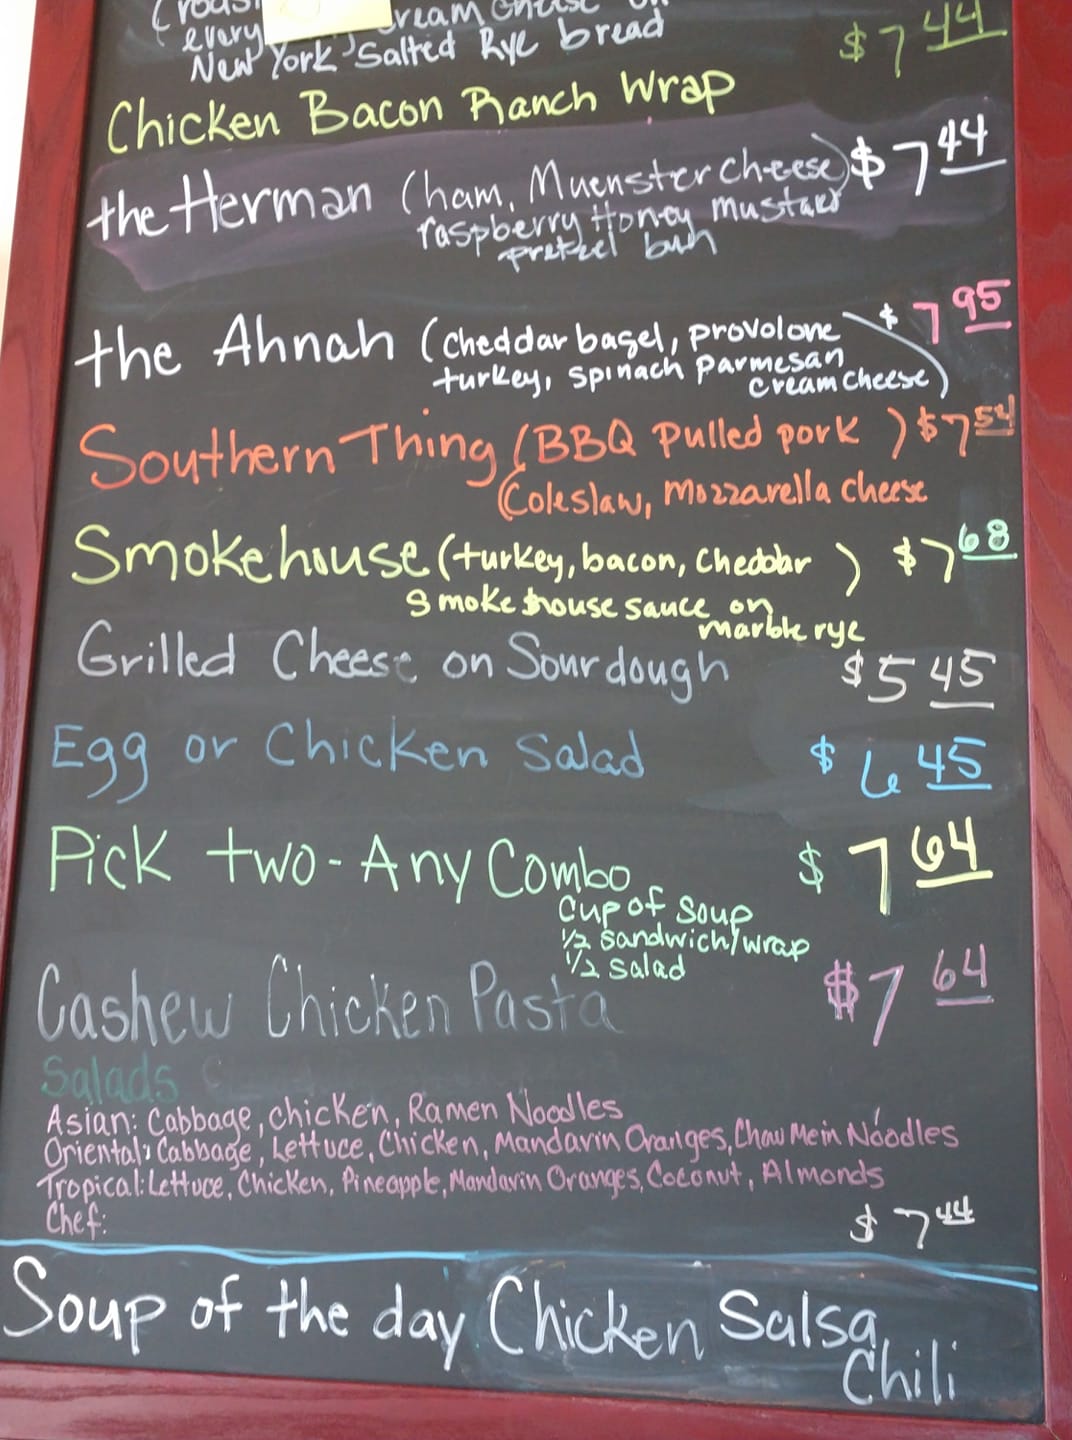 cream cheese on
every
New York Salted Rye bread $7 44
Chicken Bacon Ranch Wrap
the Herman (ham, Muenster cheese) $7 44
raspberry Honey mustard
pretzel bun
the Ahnah (cheddar bagel, provolone $7 95
turkey, spinach parmesan
cream cheese)
Southern Thing (BBQ pulled pork ) $7 54
(Coleslaw, Mozzarella cheese
Smokehouse (turkey, bacon, Cheddar ) $7 68
smokehouse sauce on
marble rye
Grilled Cheese on Sourdough $5 45
Egg or Chicken Salad $6 45
Pick two-Any Combo $7 64
Cup of Soup
1/2 sandwich/wrap
1/2 salad
Cashew Chicken Pasta $7 64
Salads
Asian: Cabbage, chicken, Ramen Noodles
Oriental: Cabbage, Lettuce, Chicken, Mandarin Oranges, Chow Mein Noodles
Tropical: Lettuce, Chicken, Pineapple, Mandarin Oranges, Coconut, Almonds
Chef: $7 44
Soup of the day Chicken Salsa
Chili